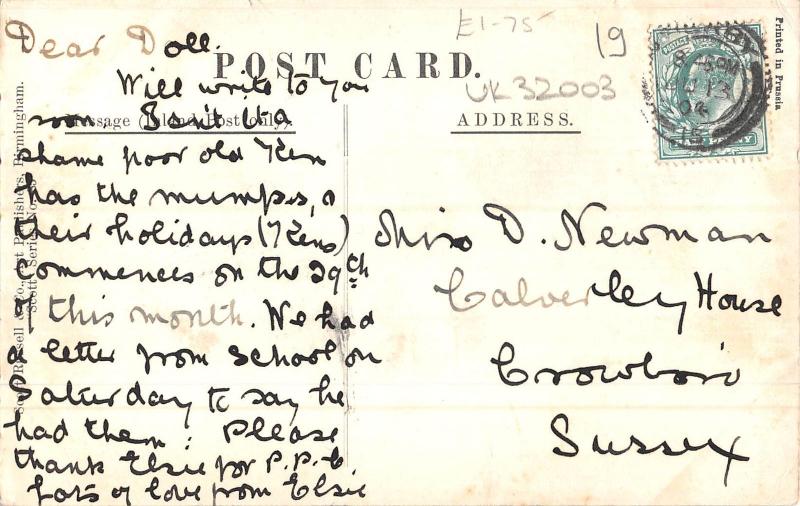 Dear Doll.
POST CARD.
Will write to you
soon Isn't it a
shame poor old Ken
has the mumps, &
their holidays (Kens)
commences on the 29th
of this month. We had
a letter from school on
Saturday to say he
had them: Please
thank Elsie for P.P.C
Lots of love from Elsie
Message (Inland Post only).
ADDRESS.
Miss D. Newman
Calverley House
Crowboro
Sussex
E1-75
19
UK32003
Printed in Prussia
Russell & Co., Art Publishers, Birmingham.
Scott Series No.
POSTAGE